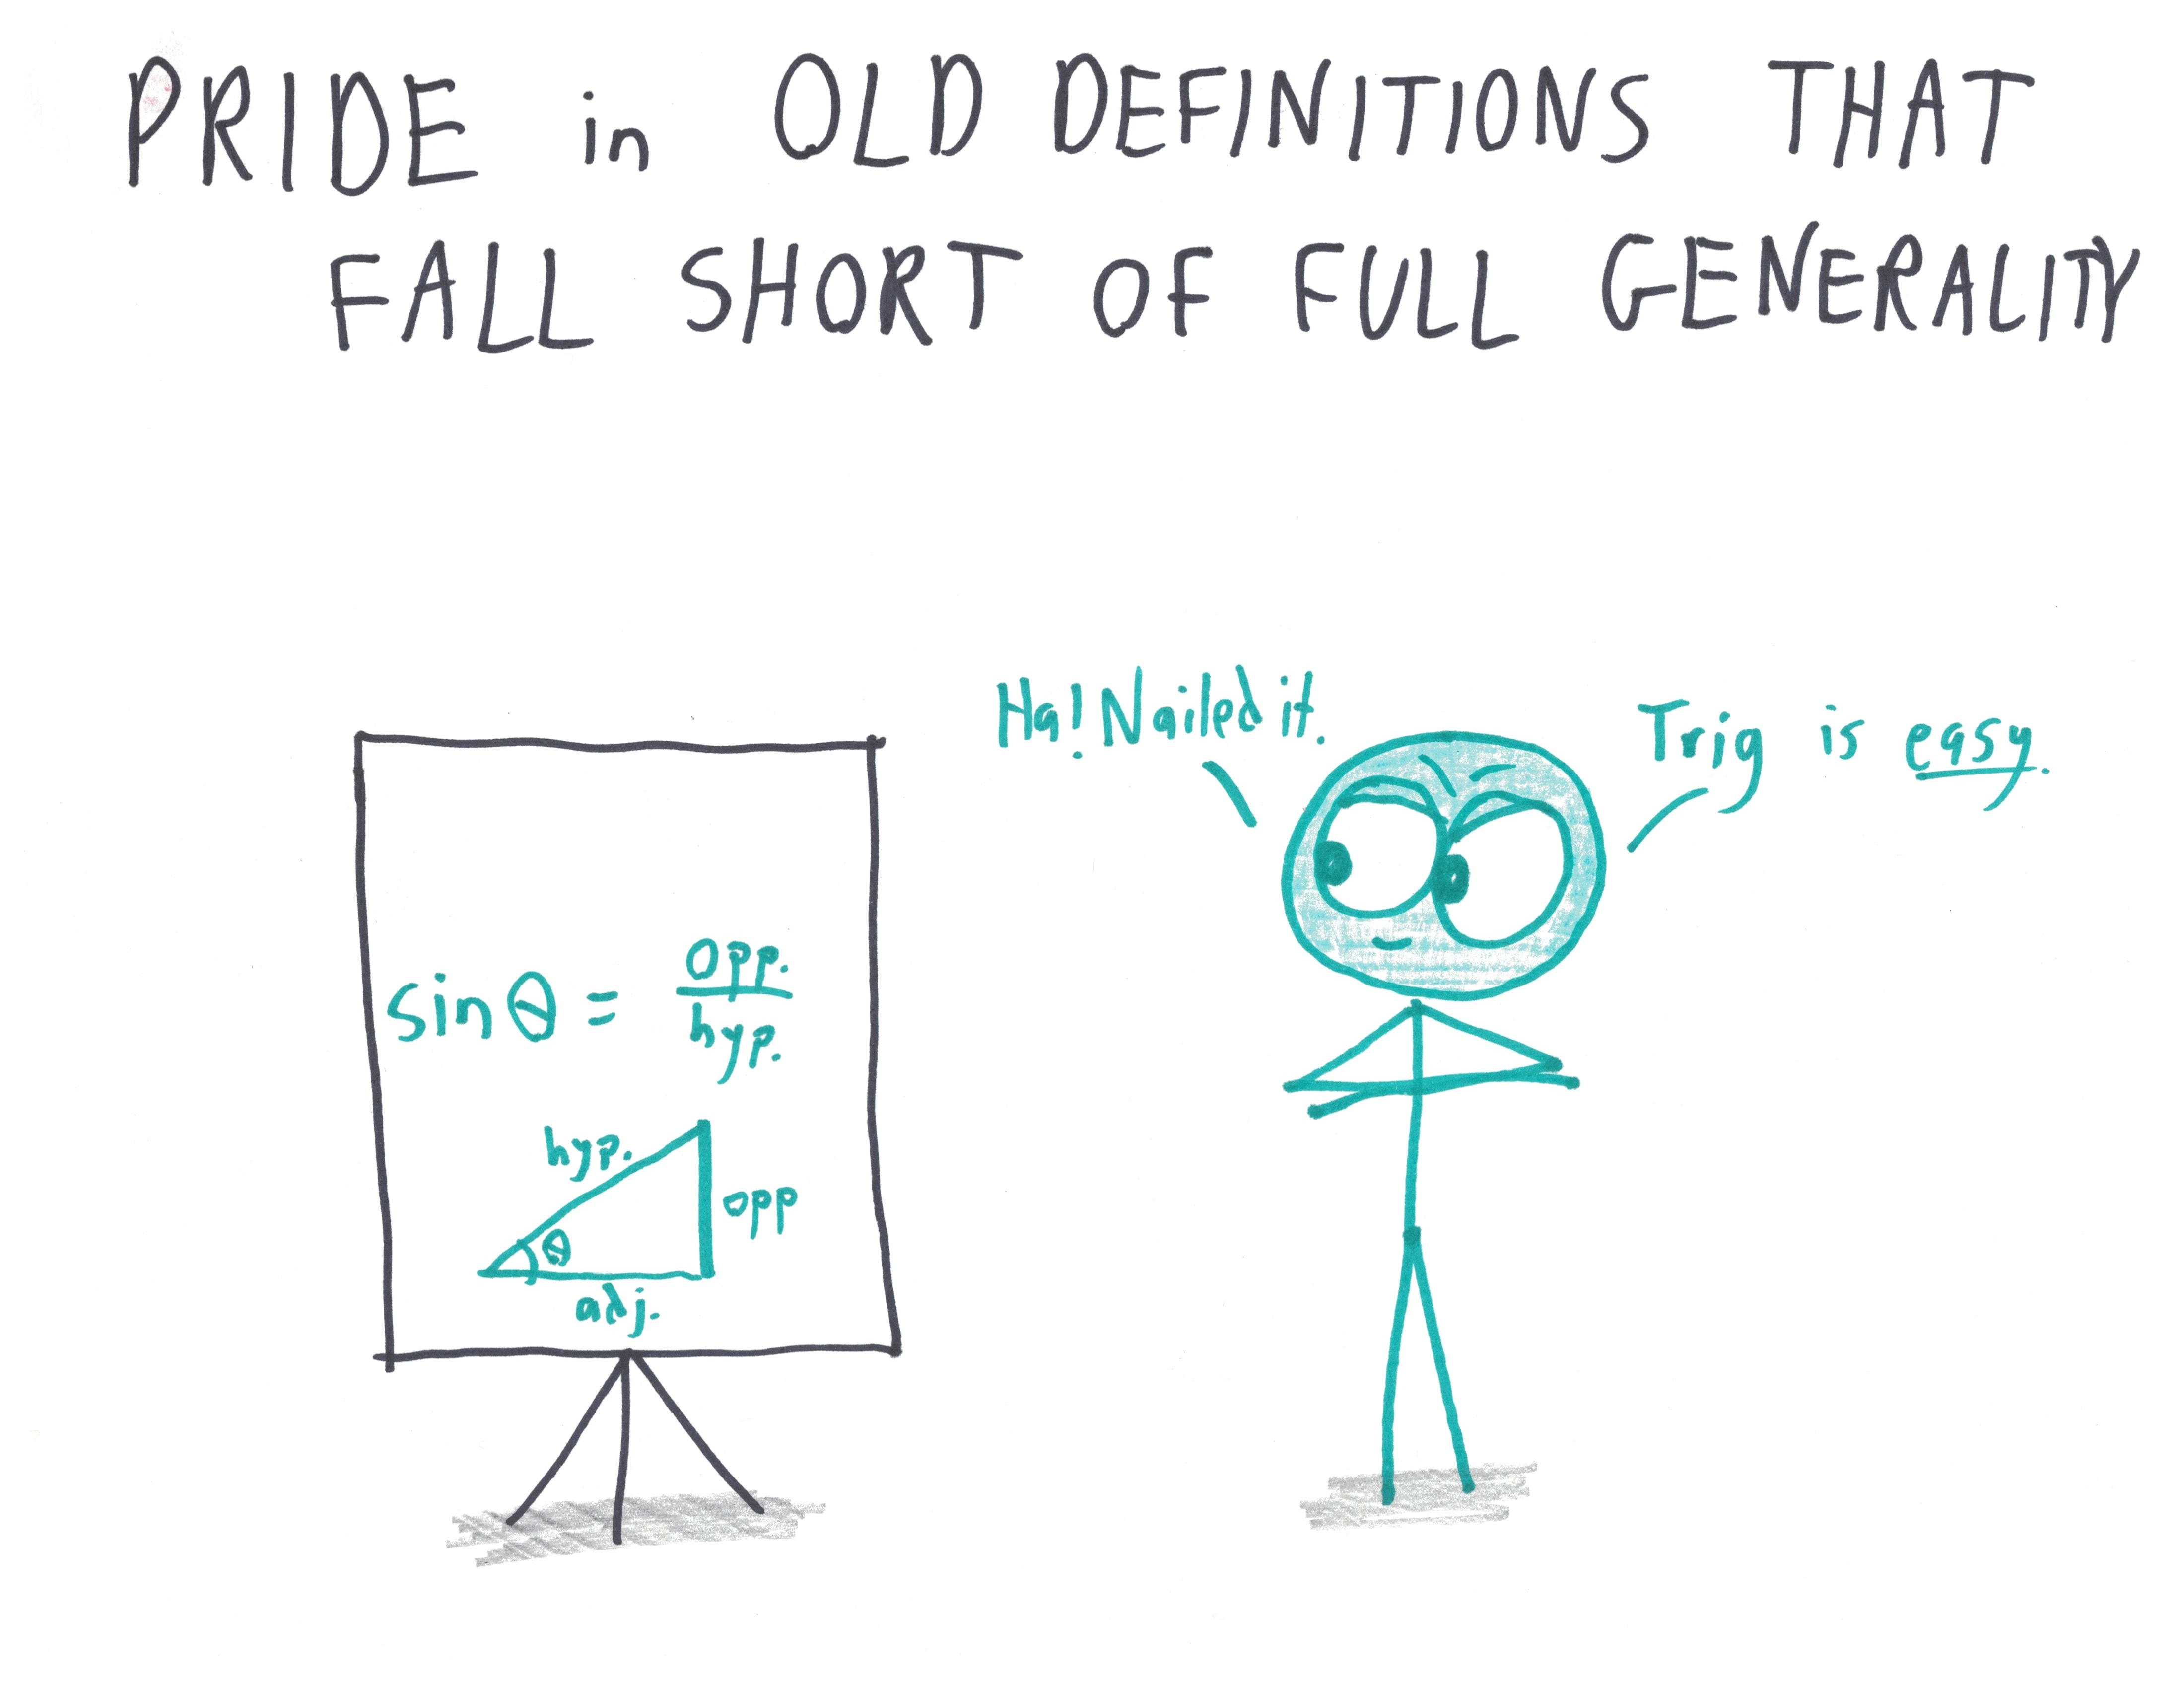 PRIDE in OLD DEFINITIONS THAT
FALL SHORT OF FULL GENERALITY
Ha! Nailed it.
Trig is easy.
sin θ = opp. / hyp.
hyp.
opp
θ
adj.